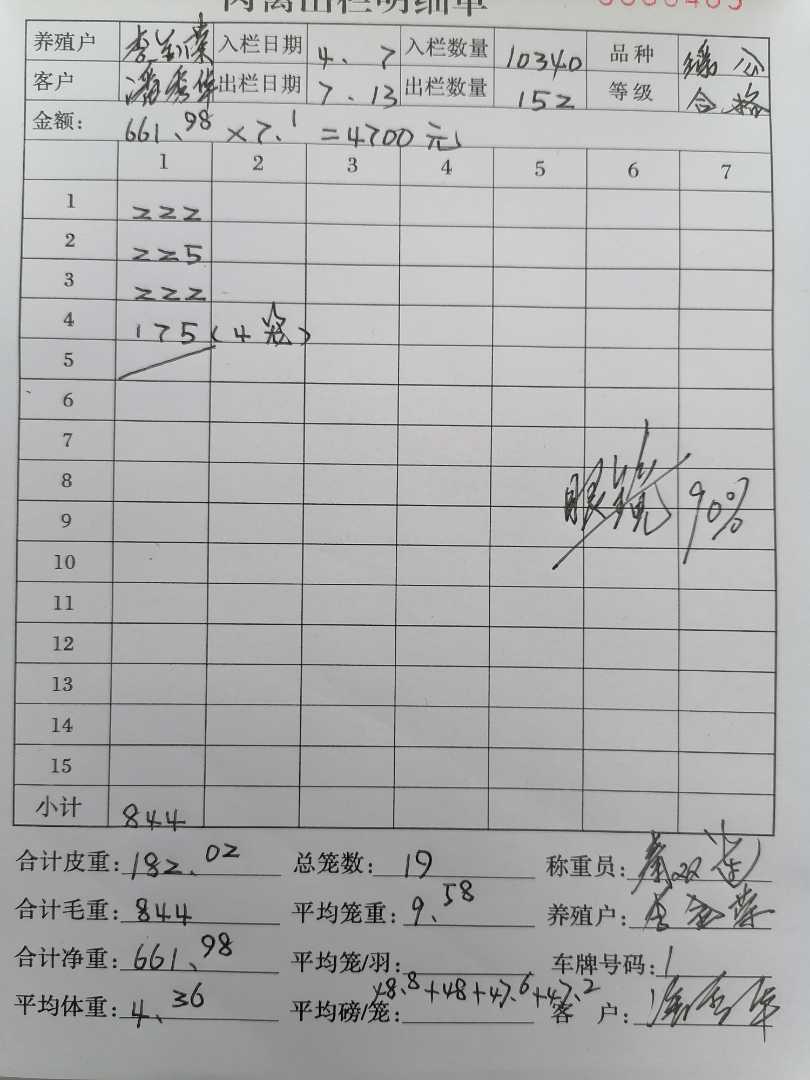 肉禽出栏明细单
养殖户 李金荣 入栏日期 4.7 入栏数量 10340 品种
客户 潘秀华 出栏日期 7.13 出栏数量 152 等级 合格
金额: 661.98 × 7.1 = 4700 元
1 2 3 4 5 6 7
1 222
2 225
3 222
4 175 (4笼)
5
6
7
8
眼镜 90%
9
10
11
12
13
14
15
小计 844
合计皮重: 182.02 总笼数: 19 称重员:
合计毛重: 844 平均笼重: 9.58 养殖户: 李金荣
合计净重: 661.98 平均笼/羽: 车牌号码: 1
平均体重: 4.36 平均磅/笼: 48.8+48+47.6+47.2 客 户: 潘秀华